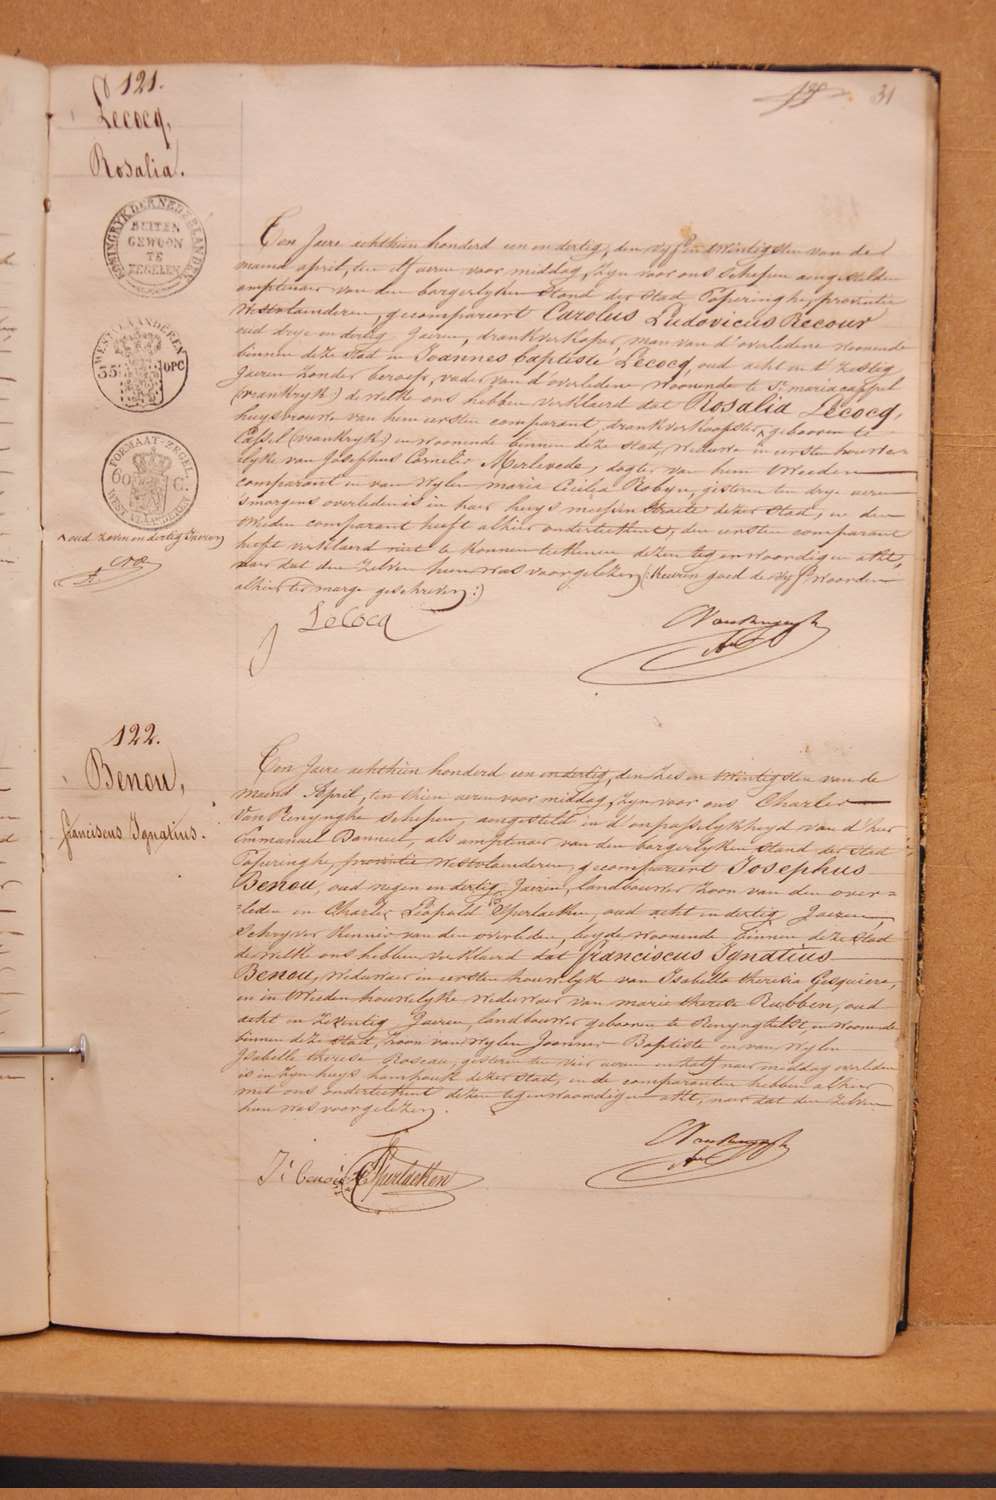 31
121.
Lecocq,
Rosalia.
KONINGRYK DER NEDERLANDEN
BUITEN
GEWOON
TE
ZEGELEN
WEST VLAANDEREN
35 OPC
FORMAAT-ZEGEL
60 C.
WEST VLAANDEREN
oud zeven en dertig Jaeren
Ten Jaere achthien honderd een en dertig, den vyf en twintigsten van de
maend april, ten elf ueren voor middag, zyn voor ons schepen aengestelden
amptenaer van den borgerlyken stand der stad Poperinghe, provintie
Westvlaenderen, gecompareert Carolus Ludovicus Recour
oud drye en dertig Jaeren, drankverkoper, man van d'overledene woonende
binnen deze stad en Joannes baptiste Lecocq, oud acht en t'zestig
Jaeren zonder beroep, vader van d'overledene woonende te St. maria cappel
(vrankryk) de welke ons hebben verklaerd dat Rosalia Lecocq,
huysvrouwe van hem eersten comparant, drankverkoopster, geboren te
Cassel (vrankryk) en woonende binnen deze stad, Weduwe in eersten houwe-
lyke van Josephus Cornelis Merlevede, dogter van hem tweeden
comparant en van wylen maria Cicilia Robyn, gisteren ten drye ueren
smorgens overleden is in haer huys meessen straete dezer stad, en den
tweeden comparant heeft alhier onderteekent, den eersten comparant
heeft verklaerd niet te konnen teekenen dezen tegenwoordigen akt,
naer dat den zelven hem was voorgelezen (:keuren goed de vyf woorden
alhier ter marge geschreven:)
LeCocq
122.
Benou,
franciscus Ignatius.
Ten Jaere achthien honderd een en dertig, den zes en twintigsten van de
maend April, ten thien ueren voor middag, zyn voor ons Charles
Van Renynghe schepen, aengesteld in d'onpasselykheyd van d'heer
Emmanuel Banneel, als amptenaer van den borgerlyken stand der stad
Poperinghe, provintie Westvlaenderen, gecompareert Josephus
Benou, oud negen en dertig Jaeren, landbouwer zoon van den over-
leden en Charles Leopold Sperlaeken, oud acht en dertig Jaeren,
schryver kennis van den overleden, beyde woonende binnen deze stad
de welke ons hebben verklaerd dat franciscus Ignatius
Benou, weduwaer in eersten houwelyke van Isabella theresia Gesquiere,
en in tweeden houwelyke weduwaer van marie therese Rubben, oud
acht en zeventig Jaeren, landbouwer geboren te Renynghelst, en woonende
binnen deze stad, zoon van wylen Joannes Baptiste en van wylen
Isabelle therese Roseau, gisteren te vier ueren en half naer middag overleden
is in zyn huys hamhouk dezer stad, en de comparanten hebben alhier
met ons onderteekent dezen tegenwoordigen akt, naer dat den zelven
hun was voorgelezen.